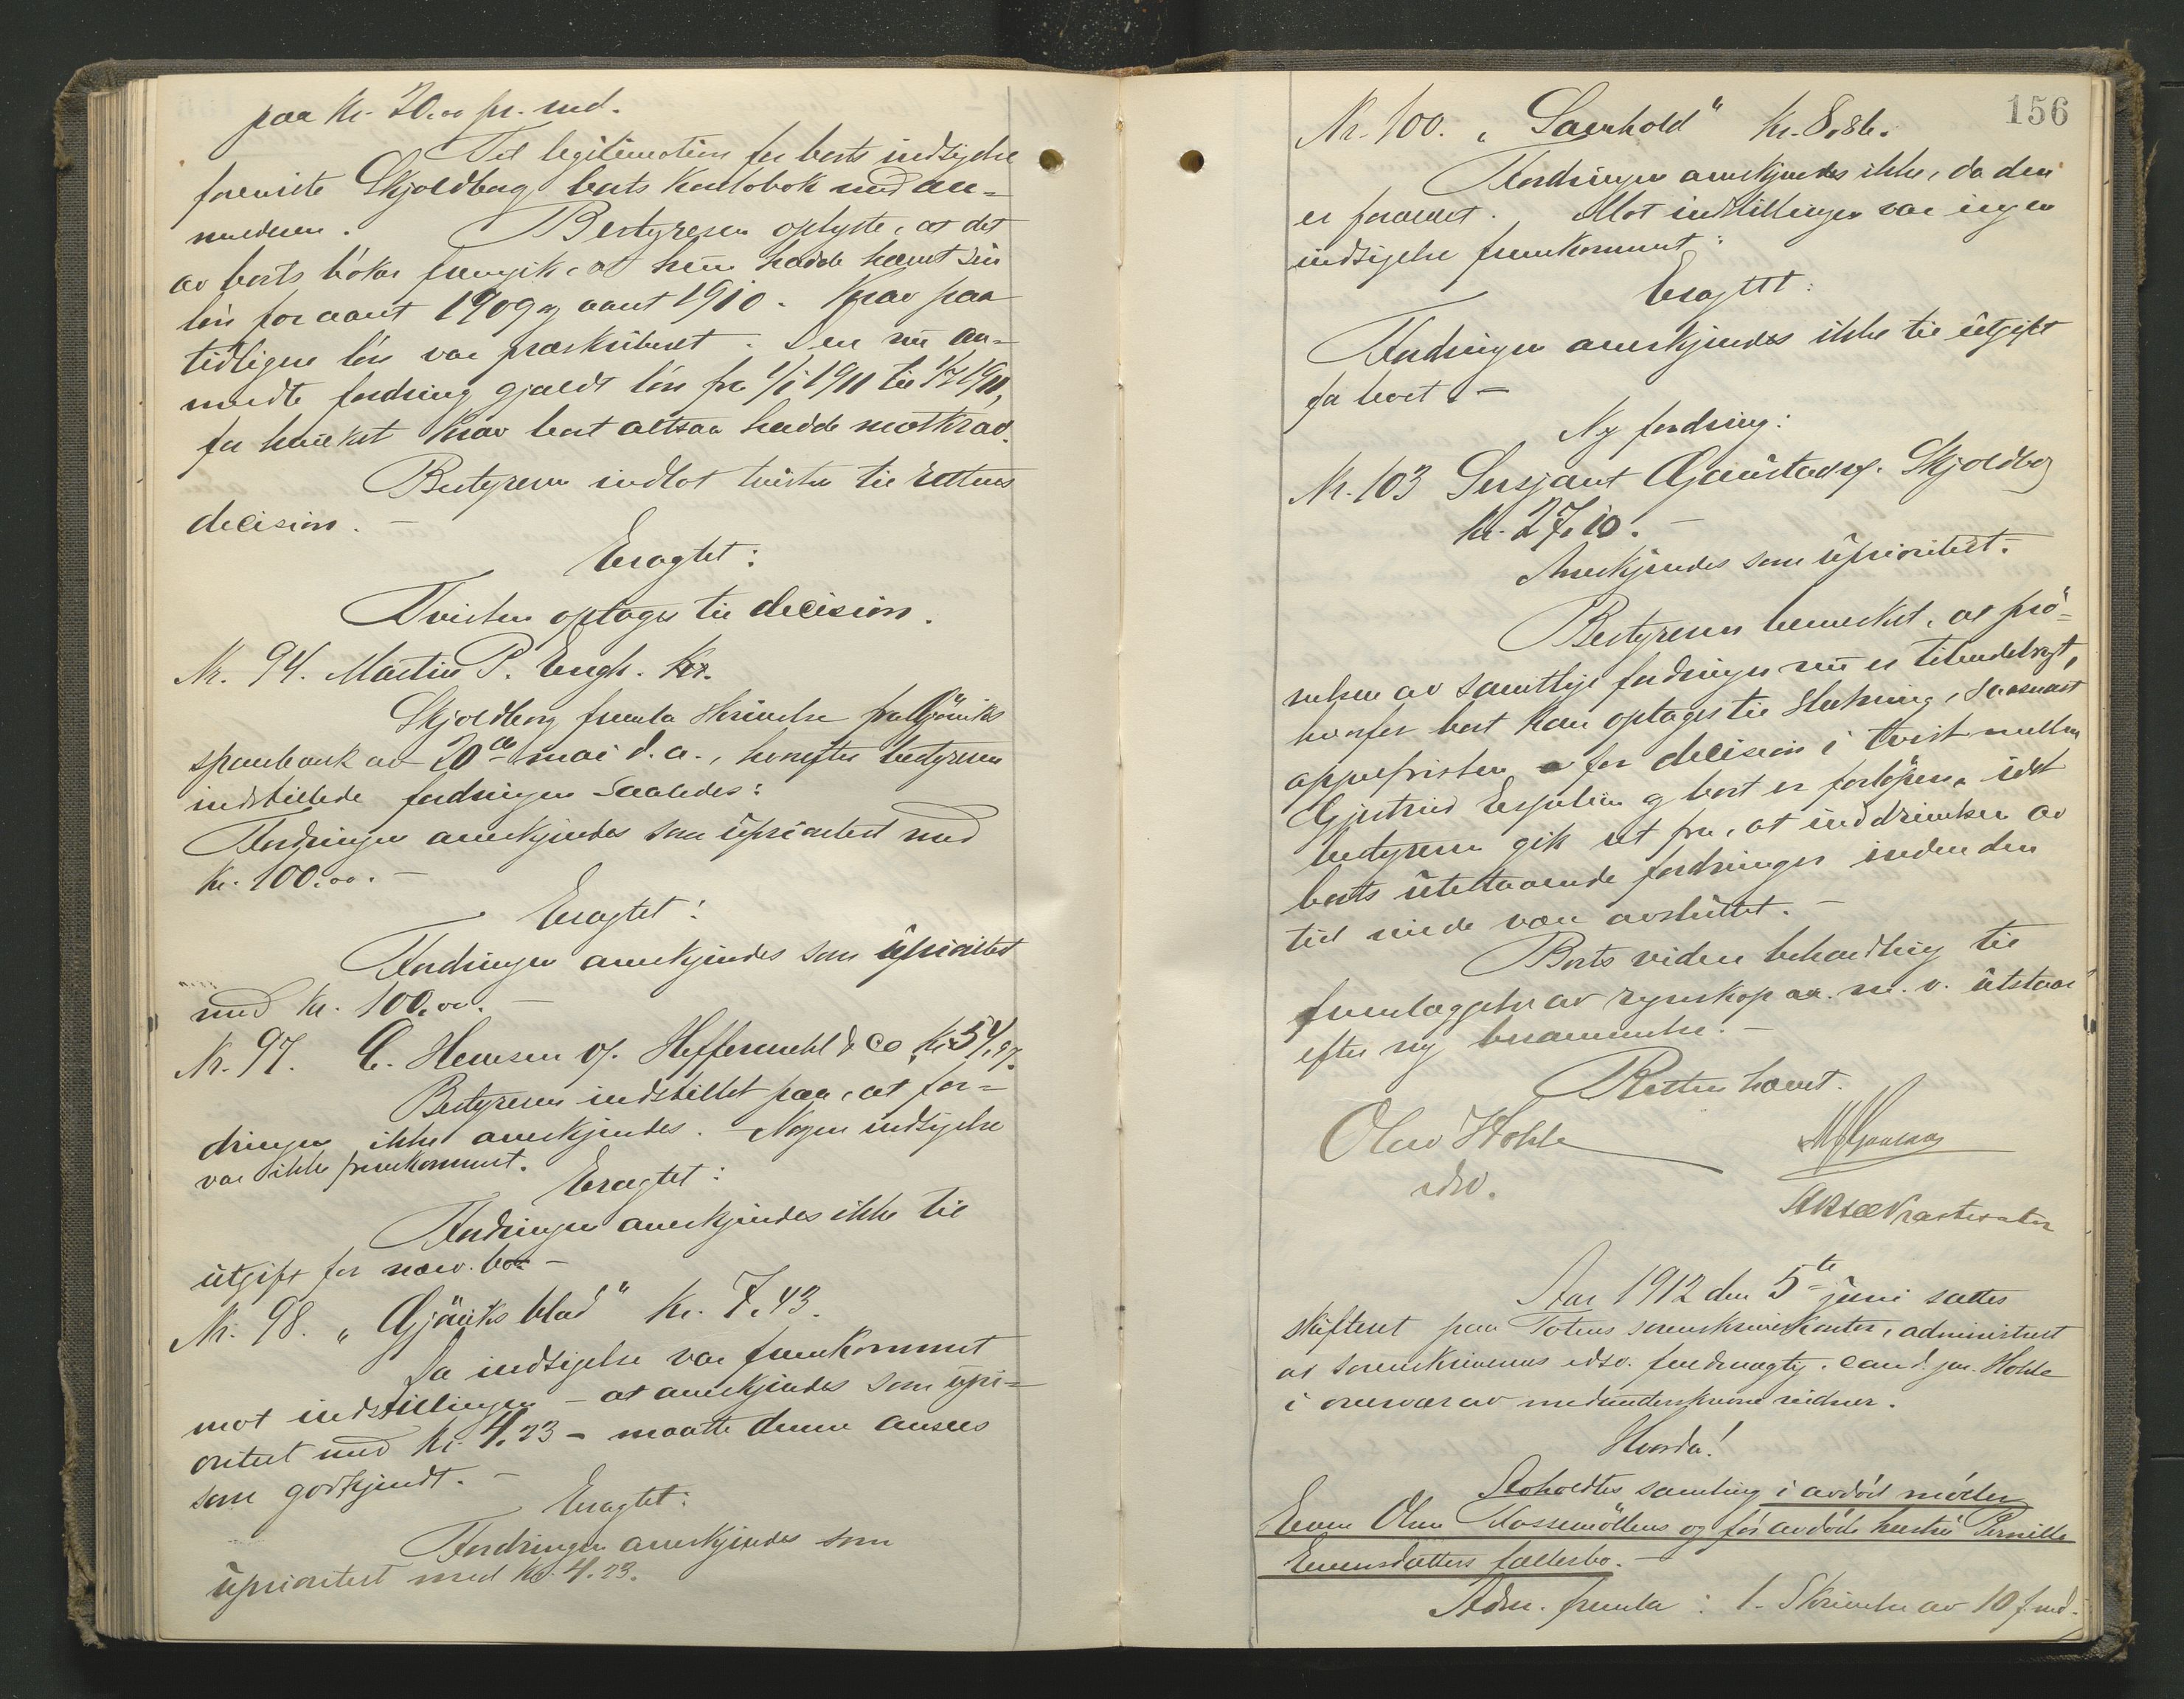 paa kr. 20.00 pr. md.
Til legitimation for boets indsigelse
foreviste Skjoldborg boets kontobok med an-
melderen. Bestyreren oplyste, at det
av boets bøker fremgik, at hun hadde hævet sin
løn for aaret 1909 og aaret 1910. Krav paa
tidligere løn var præskriberet. Den nu an-
meldte fordring gjaldt løn fra 1/1 1911 til 1/7 1911,
for hvilket krav boet altsaa hadde motkrav.
Bestyreren indlot tvisten til rettens
decision. –
Eragtet:
Tvisten optages til decision.
Nr. 94. Martin P. Engh. kr.
Skjoldborg fremla skrivelse fra Gjøviks
sparebank av 20de mai d.a., hvorefter bestyreren
indstillede fordringen saaledes:
Fordringen anerkjendes som uprioritert med
kr. 100.00. –
Eragtet:
Fordringen anerkjendes som uprioritert
med kr. 100.00. –
Nr. 97. C. Hemsen v/. Heffermehl & Co, kr. 54,97.
Bestyreren indstillet paa, at for-
dringen ikke anerkjendes. Nogen indsigelse
var ikke fremkommet.
Eragtet:
Fordringen anerkjendes ikke til
utgift for nærv. bo –
Nr. 98. "Gjøviks blad" kr. 7.43.
Da indsigelse var fremkommet
mot indstillingen – at anerkjendes som upri-
oritert med kr. 4.23 – maatte denne ansees
som godkjendt. –
Eragtet:
Fordringen anerkjendes som
uprioritert med kr. 4.23.
156
Nr. 100. "Samhold" kr. 8.86.
Fordringen anerkjendes ikke, da den
er forældet. Mot indstillingen var ingen
indsigelse fremkommet:
Eragtet:
Fordringen anerkjendes ikke til utgift
for boet. –
Ny fordring:
Nr. 103 Sersjant Gaustad v/. Skjoldborg
kr. 27.10. –
Anerkjendes som uprioritert.
Bestyreren bemerket, at prø-
velsen av samtlige fordringer nu er tilendebragt,
hvorfor boet kan optages til slutning, saasnart
appelfristen for decision i tvist mellem
Gjertrud Espelien og boet er forløpen, idet
bestyreren gik ut fra, at inddrivelsen av
boets utestaaende fordringer inden den
tid vilde være avsluttet. –
Boets videre behandling til
fremlæggelse av regnskap m. v. utstaar
efter ny berammelse. –
Retten hævet.
Olav Hohle
edsv.
Aar 1912 den 5te juni sattes
skifteret paa Totens sorenskriverkontor, administrert
av sorenskriverens edsv. fuldmægtig, cand. jur. Hohle
i overvær av medunderskrevne vidner.
Hvorda!
Avholdtes samling i avdød møller
Even Olsen Fossemøllens og før avdøde hustru Pernille
Evensdatters fællesbo. –
Adm. fremla: 1. Skrivelse av 10 f. md.